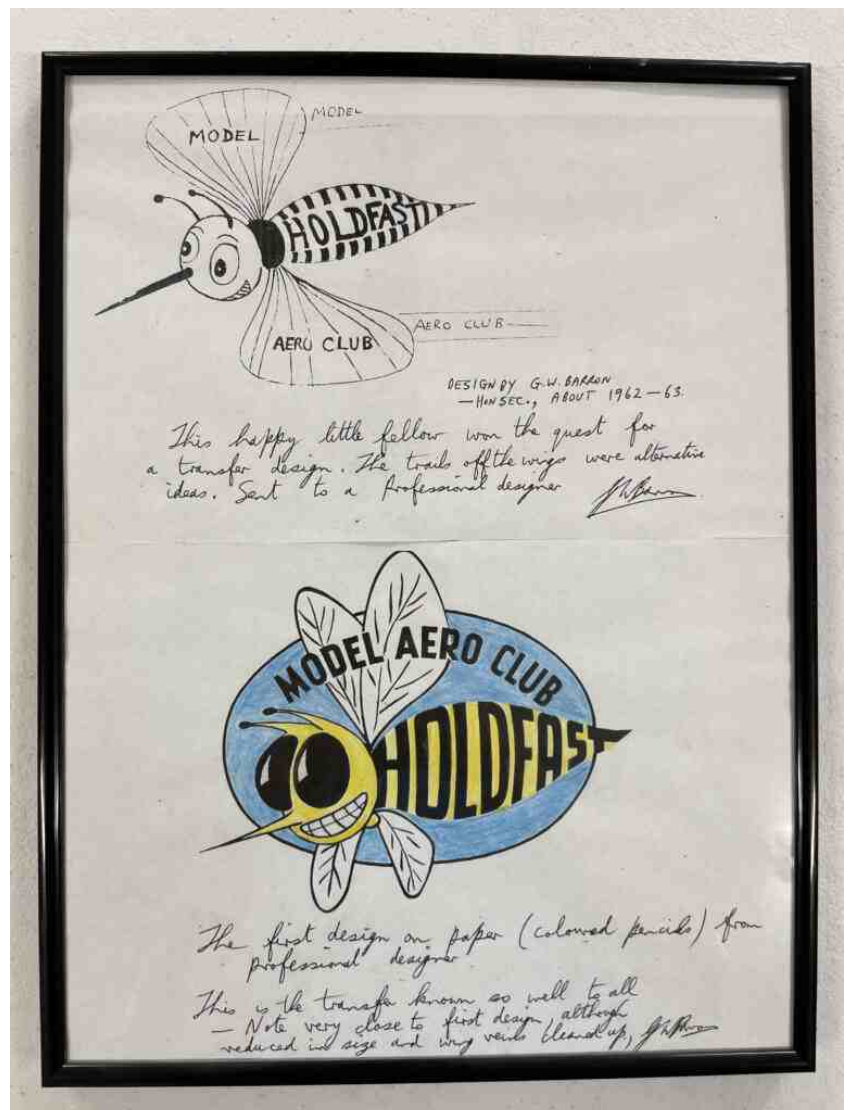 MODEL
MODEL
HOLDFAST
AERO CLUB
AERO CLUB
DESIGN BY G.W. BARRON
— HON SEC., ABOUT 1962 — 63.
This happy little fellow won the quest for
a transfer design. The trails off the wings were alternative
ideas. Sent to a Professional designer
MODEL AERO CLUB
HOLDFAST
The first design on paper (coloured pencils) from
professional designer
This is the transfer known so well to all
— Note very close to first design, although
reduced in size and wing veins cleaned up,